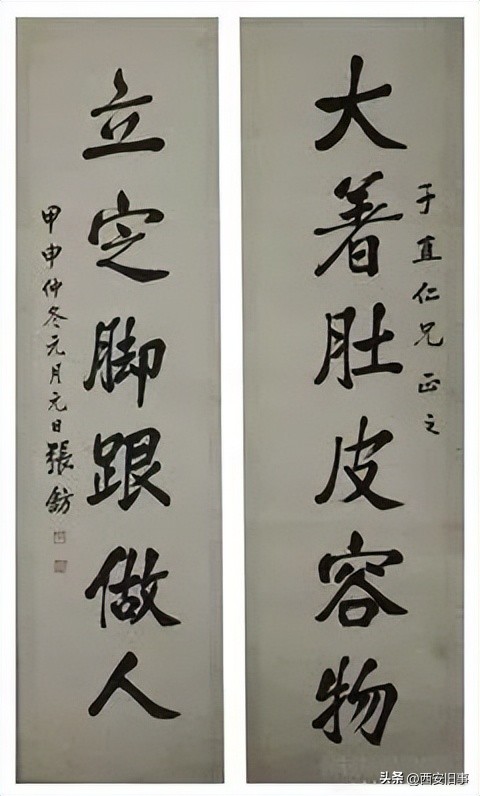 大着肚皮容物
于直仁兄正之
立定脚跟做人
甲申仲冬元月元日張鈁
头条@西安旧事